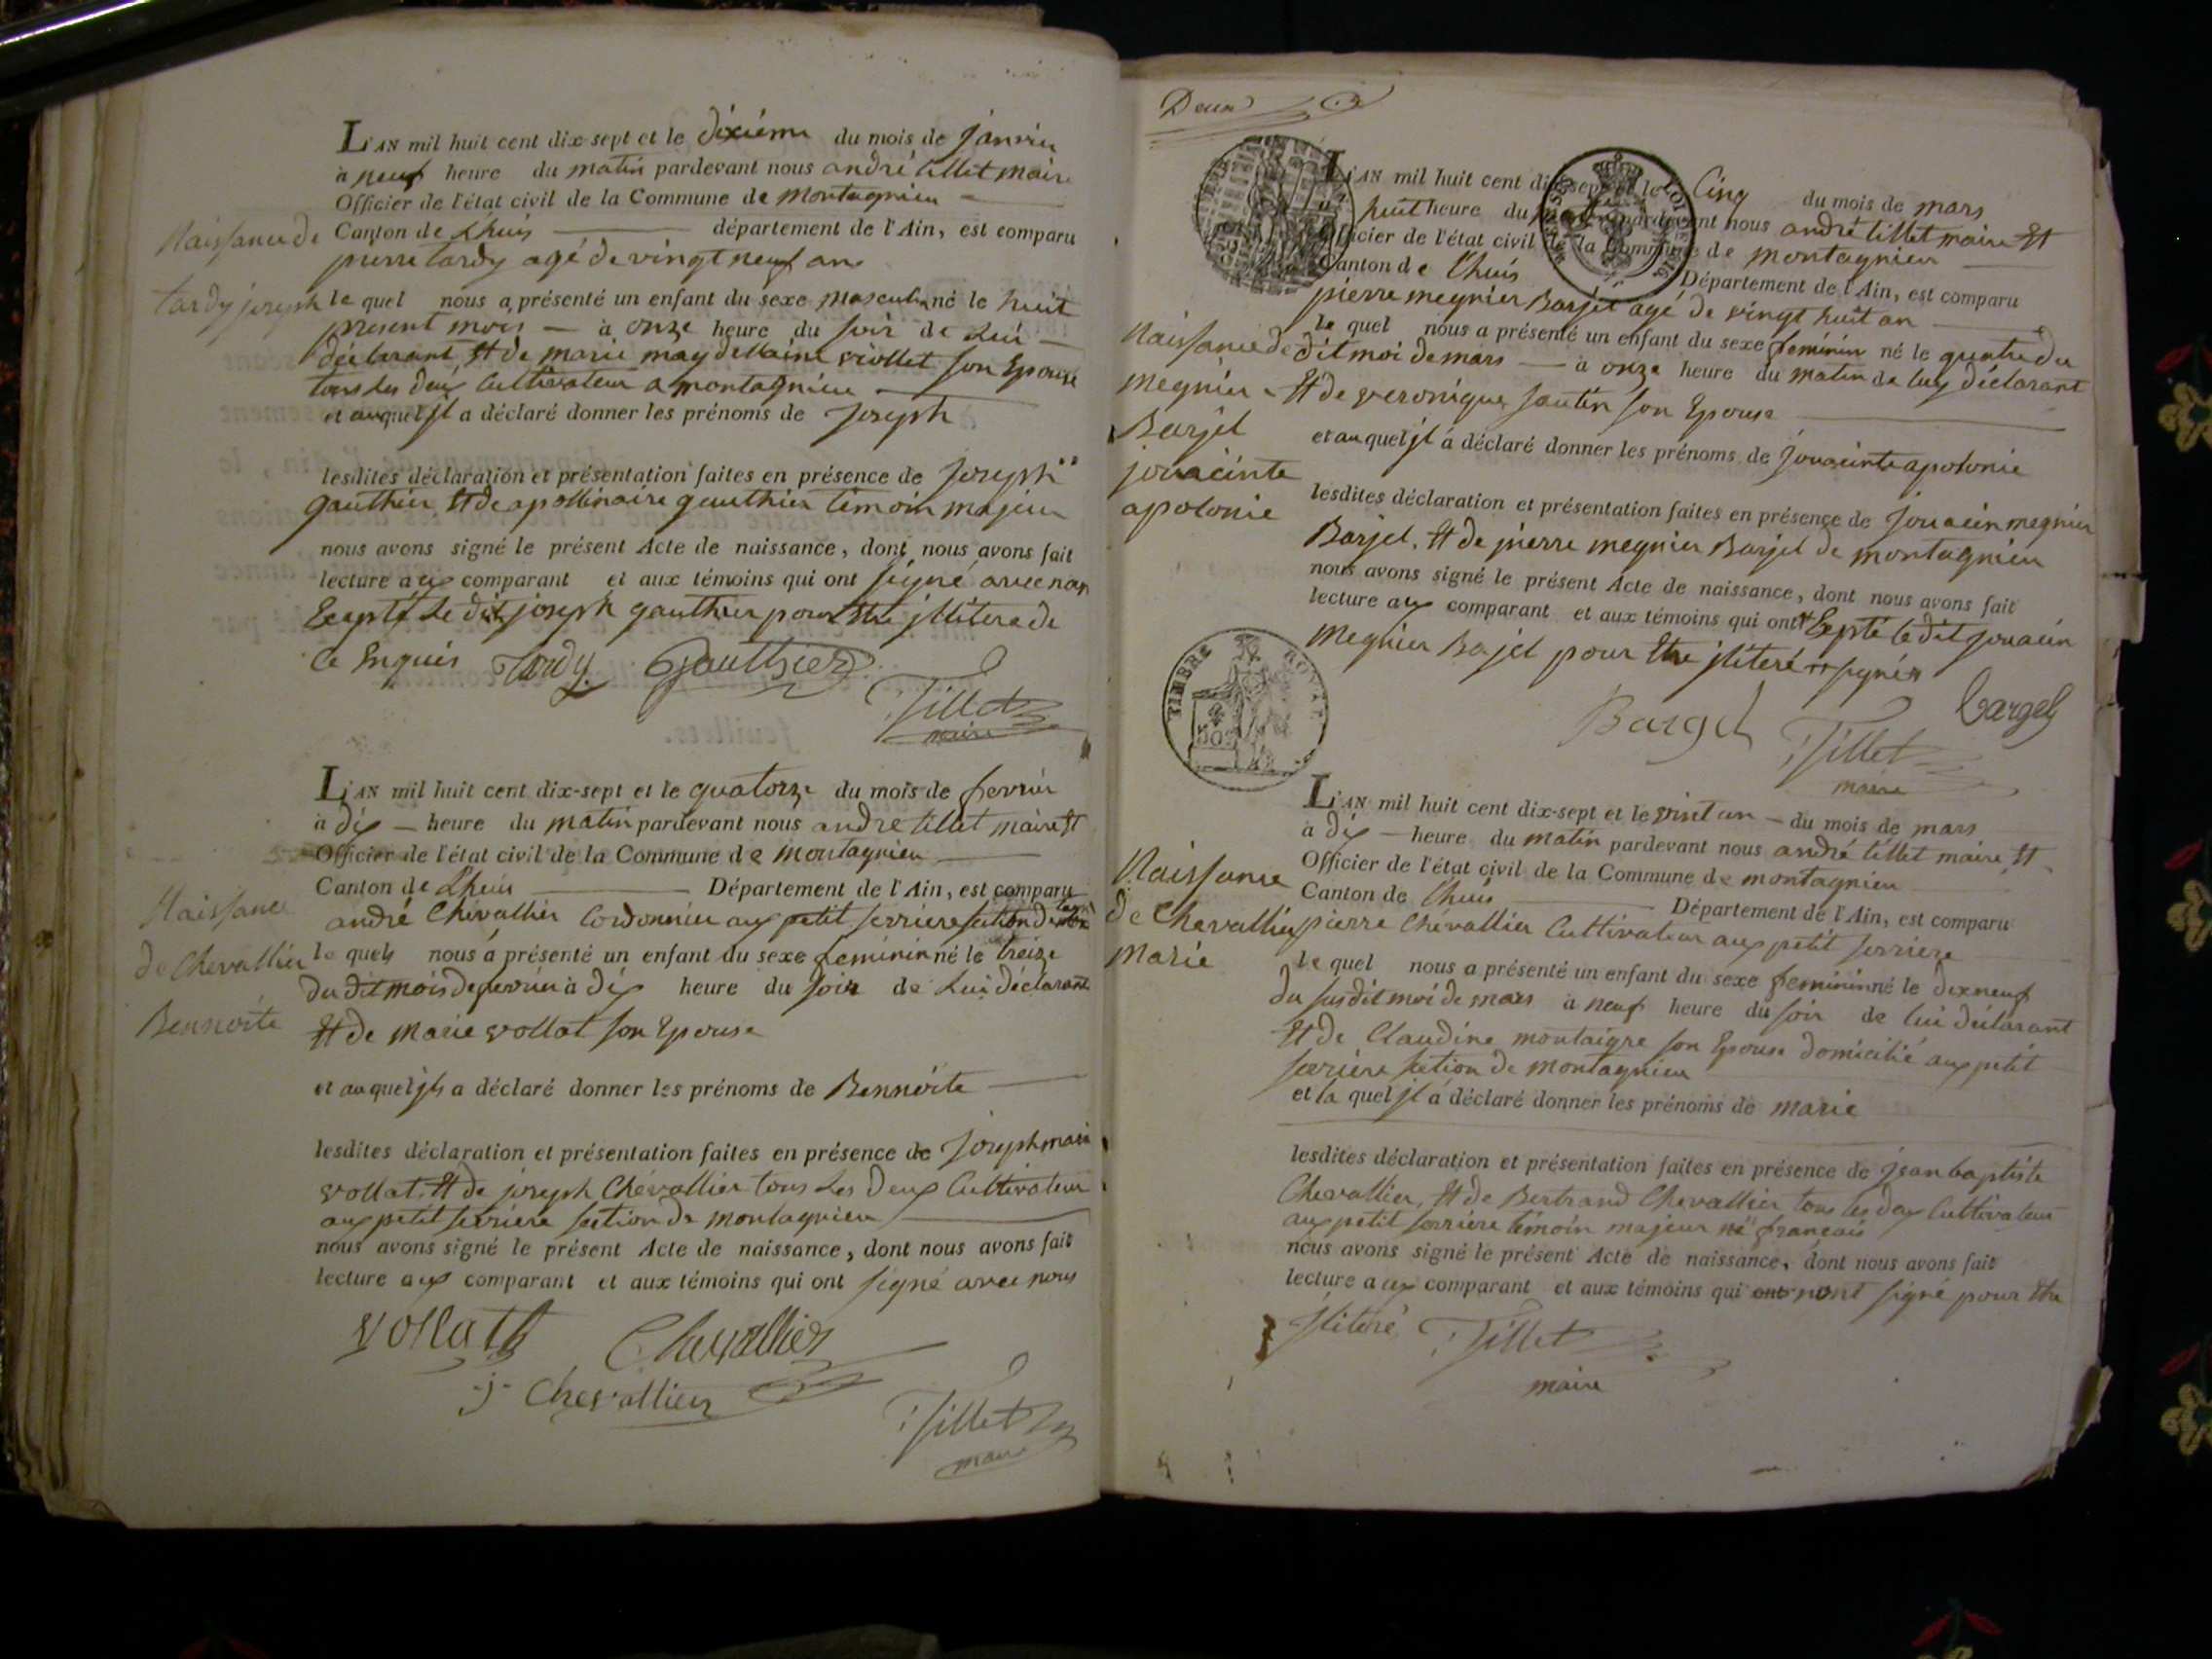 L'AN mil huit cent dix-sept et le dixieme du mois de janvier
à neuf heure du matin pardevant nous andré tillet maire
Officier de l'état civil de la Commune de Montagnieu
Canton de Lhuis département de l'Ain, est comparu
pierre tardy agé de vingt neuf ans
Naissance de
tardy joseph
le quel nous a présenté un enfant du sexe masculin né le huit
present mois à onze heure du soir de Lui
déclarant Et de marie magdellaine viollet son Epouse
tous les deux Cultivateur a montagnieu
et auquel jl a déclaré donner les prénoms de Joseph
lesdites déclaration et présentation faites en présence de Joseph
gauthier Et de apollinaire gauthier temoin majeur
nous avons signé le présent Acte de naissance, dont nous avons fait
lecture aux comparant et aux témoins qui ont signé avec nous
Excepté Le dit joseph gauthier pour Etre jllitere de
Ce Enquis Tardy Gauthier
Tillet
maire
L'AN mil huit cent dix-sept et le quatorze du mois de fevrier
à dix heure du matin pardevant nous andre tillet maire Et
Officier de l'état civil de la Commune de Montagnieu
Canton de Lhuis Département de l'Ain, est comparu
andré Chevallier Cordonnier aux petit serriere section de
Naissance
de Chevallier
Bennoite
le quels nous a présenté un enfant du sexe feminin né le treize
du dit mois de fevrier à dix heure du soir de Lui déclarant
Et de Marie vollat son Epouse
et auquel jls a déclaré donner les prénoms de Bennoite
lesdites déclaration et présentation faites en présence de Joseph marie
vollat, Et de joseph Chevallier tous Les deux Cultivateur
aux petit serriere section de Montagnieu
nous avons signé le présent Acte de naissance, dont nous avons fait
lecture aux comparant et aux témoins qui ont signé avec nous
vollat Chevallier
j Chevallier
Tillet
maire
Deux
L'AN mil huit cent dix-sept et le Cinq du mois de mars
huit heure du pardevant nous andré tillet maire Et
Officier de l'état civil de la Commune de montagnieu
Canton de Lhuis Département de l'Ain, est comparu
pierre megnier Barjel agé de vingt huit an
Naissance de
megnier
Barjel
jouacinte
apolonie
le quel nous a présenté un enfant du sexe feminin né le quatre du
dit moi de mars à onze heure du matin de luy déclarant
Et de veronique sautin son Epouse
et au quel jl a déclaré donner les prénoms de Jouacinte apolonie
lesdites déclaration et présentation faites en présence de Jouacin megnier
Barjel, Et de pierre megnier Barjel de montagnieu
nous avons signé le présent Acte de naissance, dont nous avons fait
lecture aux comparant et aux témoins qui ont Eepté le dit jouacin
megnier Bajel pour Etre jliteré signé
TIMBRE ROYAL
Bargel Tillet bargel
maire
L'AN mil huit cent dix-sept et le vint un du mois de mars
a dix heure du matin pardevant nous andré tillet maire Et
Officier de l'état civil de la Commune de montagnieu
Canton de Lhuis Département de l'Ain, est comparu
pierre Chevallier Cultivateur aux petit serriere
Naissance
de Chevallier
Marie
le quel nous a présenté un enfant du sexe feminin né le dixneuf
du susdit moi de mars a neuf heure du soir de lui déclarant
Et de Claudine montaigre son Epouse domicilié aux petit
serriere section de montagnieu
et la quel jl a déclaré donner les prénoms de marie
lesdites déclaration et présentation faites en présence de jean baptiste
Chevallier, Et de Bertrand Chevallier tous les deux Cultivateur
aux petit serriere témoin majeur né français
nous avons signé le présent Acte de naissance, dont nous avons fait
lecture aux comparant et aux témoins qui ont nont signé pour Etre
jliteré Tillet
maire